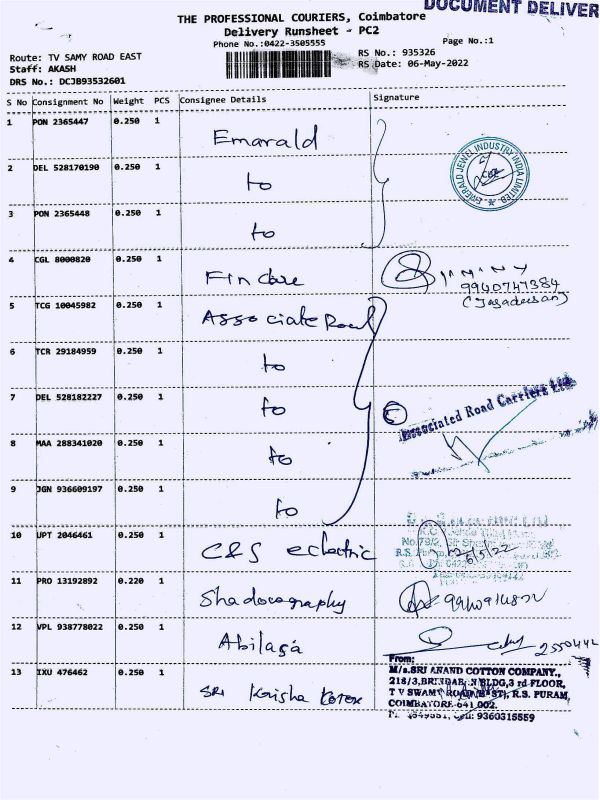 DOCUMENT DELIVER
THE PROFESSIONAL COURIERS, Coimbatore
Delivery Runsheet - PC2
Phone No.:0422-3505555
Page No.:1
Route: TV SAMY ROAD EAST
RS No.: 935326
Staff: AKASH
RS Date: 06-May-2022
DRS No.: DCJB93532601
S No Consignment No Weight PCS Consignee Details Signature
1 PON 2365447 0.250 1 Emarald
EMERALD JEWEL INDUSTRY INDIA LIMITED
2 DEL 528170190 0.250 1 to
3 PON 2365448 0.250 1 to
4 CGL 8000820 0.250 1 Fincare
9940747384
(Jagadeesan)
5 TCG 10045982 0.250 1 Associate Road
6 TCR 29184959 0.250 1 to
7 DEL 528182227 0.250 1 to
Associated Road Carriers Ltd
8 MAA 288341020 0.250 1 to
9 JGN 936609197 0.250 1 to
10 UPT 2046461 0.250 1 C&S eclectric
6/5/22
11 PRO 13192892 0.220 1 Shadocography
12 VPL 938778022 0.250 1 Abilasa
2550442
13 IXU 476462 0.250 1 SRI Krisha Kotex
From:
M/s.SRI ANAND COTTON COMPANY.,
218/3, BLDG, 3 rd FLOOR,
T V SWAMY ROAD R.S. PURAM,
COIMBATORE-641 002.
9360315559